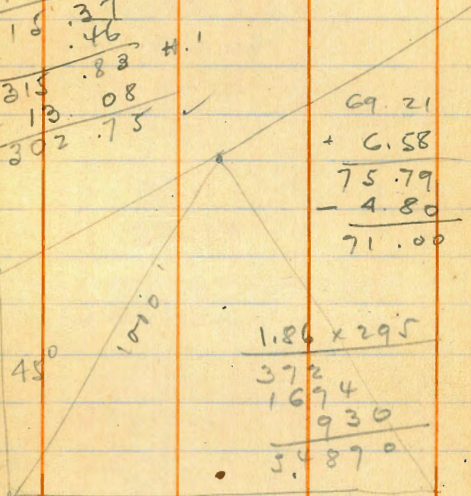 15 .37
.46
.83 H.1
315
13. 08
302 .75 ✓
69.21
+ 6.58
75.79
- 4.80
71.00
1000'
45°
1.86 x 295
372
1694
930
5.4890